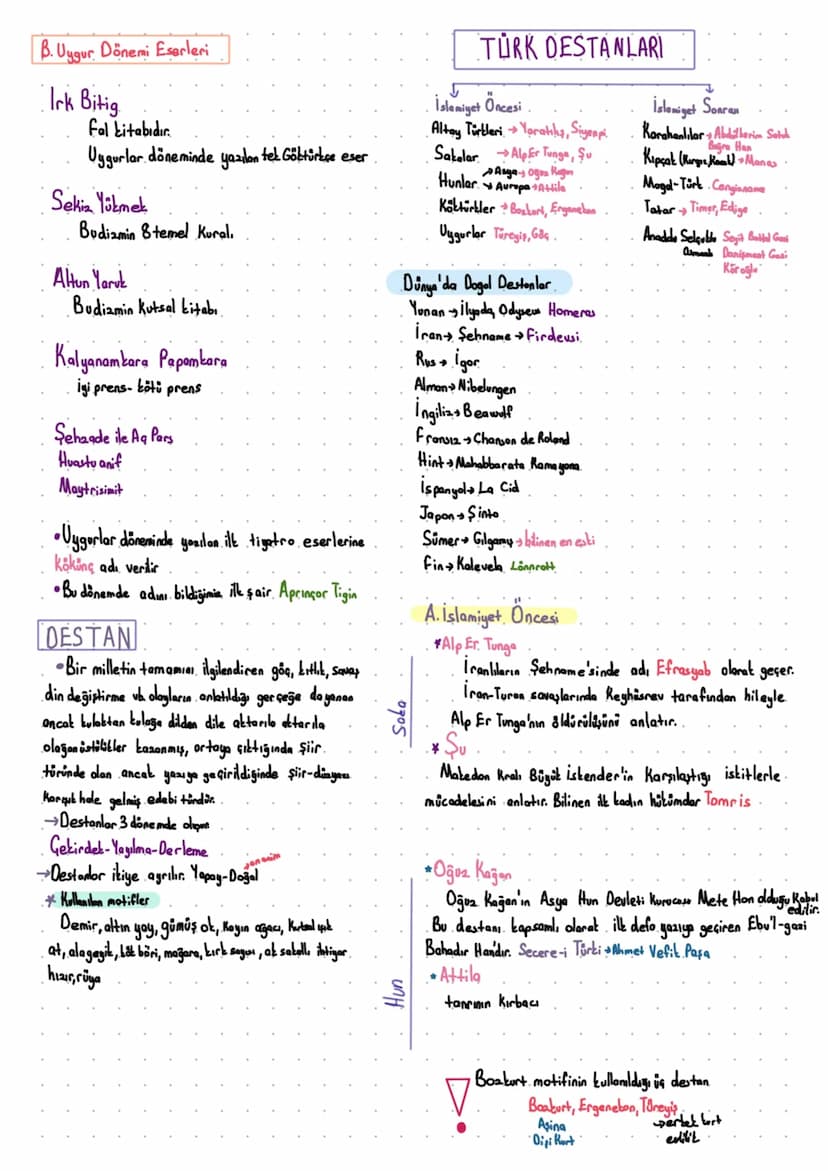 B. Uygur Dönemi Eserleri
Irk Bitig
Fal kitabıdır.
Uygurlar döneminde yazılan tek Göktürkçe eser
Sekiz Yükmek
Budizmin 8 temel Kuralı
Altun Yaruk
Budizmin Kutsal kitabı
Kalyanamkara Papamkara
iyi prens- kötü prens
Şehzade ile Aç Pars
Huastuanif
Maytrisimit
• Uygurlar döneminde yazılan ilk tiyatro eserlerine
Kökünç adı verilir
• Bu dönemde adını bildiğimiz ilk şair Aprınçor Tigin
DESTAN
• Bir milletin tamamını ilgilendiren göç, kıtlık, savaş
din değiştirme vb olayların anlatıldığı gerçeğe dayanan
ancak kulaktan kulağa dilden dile aktarıla aktarıla
olağanüstülükler kazanmış, ortaya çıktığında şiir
türünde olan ancak yazıya geçirildiğinde şiir-düzyazı
karışık hale gelmiş edebi türdür.
→ Destanlar 3 dönemde oluşur
Çekirdek-Yayılma-Derleme
→ Destanlar ikiye ayrılır. Yapay-Doğal
→ anonim
* Kullanılan motifler
Demir, altın yay, gümüş ok, Kayın ağacı, Kutsal ışık
at, alageyik, kök böri, mağara, kırk sayısı, ak sakallı ihtiyar
hızır, rüya
TÜRK DESTANLARI
İslamiyet Öncesi
Altay Türkleri → Yaratılış, Siyenpi
Sakalar → Alp Er Tunga, Şu
Hunlar → Asya → Oğuz Kağan
→ Avrupa → Attila
Köktürkler → Bozkurt, Ergenekon
Uygurlar Türeyiş, Göç
İslamiyet Sonrası
Karahanlılar → Abdülkerim Satuk
Buğra Han
Kıpçak (Kırgız, Kazak) → Manas
Mogol-Türk Cengizname
Tatar → Timur, Edige
Anadolu Selçuklu Seyit Battal Gazi
Osmanlı Danişment Gazi
Köroğlu
Dünya'da Doğal Destanlar
Yunan → İlyada, Odyseus Homeros
İran → Şehname → Firdevsi
Rus → İgor
Alman → Nibelungen
İngiliz → Beawulf
Fransız → Chanson de Roland
Hint → Mahabbarata Ramayana
İspanyol → La Cid
Japon → Şinto
Sümer → Gılgamış → bilinen en eski
Fin → Kalevela Lönnrott
A. İslamiyet Öncesi
Saka
* Alp Er Tunga
İranlıların Şehname'sinde adı Efrasyab olarak geçer.
İran-Turan savaşlarında Keyhüsrev tarafından hileyle
Alp Er Tunga'nın öldürülüşünü anlatır.
* Şu
Makedon Kralı Büyük İskender'in Karşılaştığı iskitlerle
mücadelesini anlatır. Bilinen ilk kadın hükümdar Tomris
Hun
* Oğuz Kağan
Oğuz Kağan'ın Asya Hun Devleti Kurucusu Mete Han olduğu Kabul
edilir.
Bu destanı kapsamlı olarak ilk defa yazıya geçiren Ebu'l-gazi
Bahadır Han'dır. Secere-i Türki → Ahmet Vefik Paşa
* Attila
tanrının Kırbacı
! Bozkurt motifinin kullanıldığı üç destan
Bozkurt, Ergenekon, Türeyiş
Aşina
Dişi Kurt
→ erkek kurt